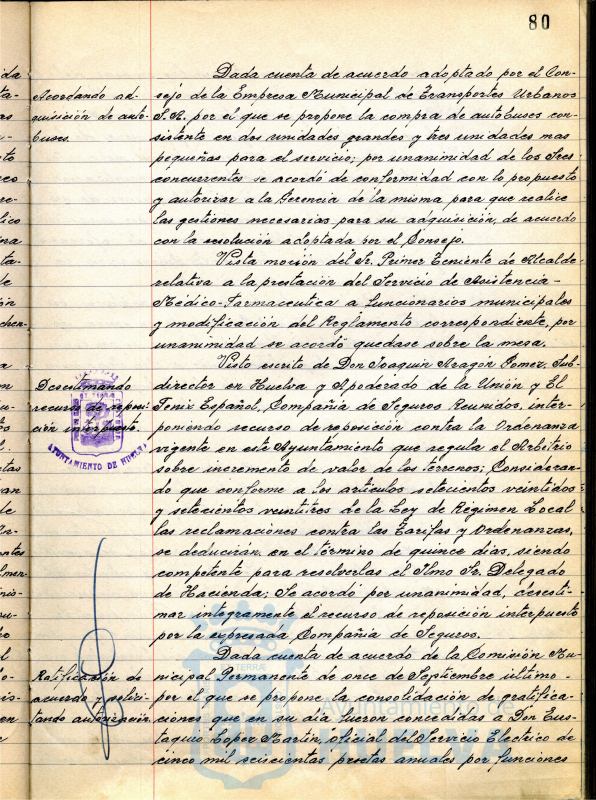 80
Dada cuenta de acuerdo adoptado por el Con-
sejo de la Empresa Municipal de Transportes Urbanos
S.A. por el que se propone la compra de autobuses con-
sistente en dos unidades grandes y tres unidades mas
pequeñas para el servicio; por unanimidad de los Sres.
concurrentes se acordó de conformidad con lo propuesto
y autorizar a la Gerencia de la misma para que realice
las gestiones necesarias para su adquisición, de acuerdo
con la resolución adoptada por el Consejo.
Acordando ad-
quisición de auto-
buses.
Vista moción del Sr. Primer Teniente de Alcalde
relativa a la prestación del Servicio de Asistencia-
Médico-Farmaceutica a funcionarios municipales
y modificación del Reglamento correspondiente, por
unanimidad se acordó quedase sobre la mesa.
Visto escrito de Don Joaquin Aragón Gomez, Sub-
director en Huelva y Apoderado de la Unión y El
Fenix Español, Compañia de Seguros Reunidos, inter-
poniendo recurso de reposición contra la Ordenanza
vigente en este Ayuntamiento que regula el Arbitrio
sobre incremento de valor de los terrenos; Consideran-
do que conforme a los articulos setecientos veintidos
y setecientos veintitres de la Ley de Regimen Local
las reclamaciones contra las Tarifas y Ordenanzas,
se deducirán en el término de quince dias, siendo
competente para resolverlas el Ilmo Sr. Delegado
de Hacienda; Se acordó por unanimidad, desesti-
mar integramente el recurso de reposición interpuesto
por la expresada Compañia de Seguros.
Desestimando
recurso de reposi-
ción interpuesto.
AYUNTAMIENTO DE HUELVA
Dada cuenta de acuerdo de la Comisión Mu-
nicipal Permanente de once de Septiembre último-
por el que se propone la consolidación de gratifica-
ciones que en su dia fueron concedidas a Don Eus-
taquio Lopez Martin, oficial del Servicio Electrico de
cinco mil seiscientas pesetas anuales por funciones
Ratificación de
acuerdo y solici-
tando autorización.
Ayuntamiento de
HUELVA